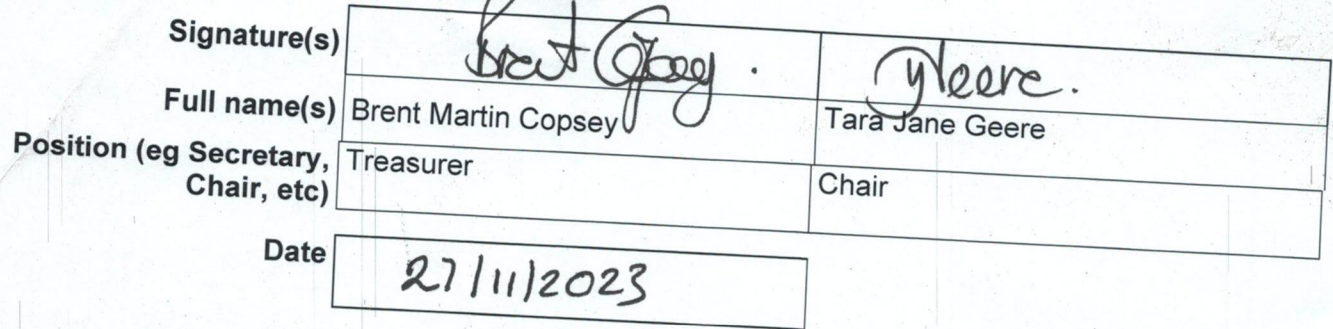 Signature(s) Brent Copsey. Geere.
Full name(s) Brent Martin Copsey Tara Jane Geere
Position (eg Secretary, Treasurer Chair
Chair, etc)
Date 27/11/2023